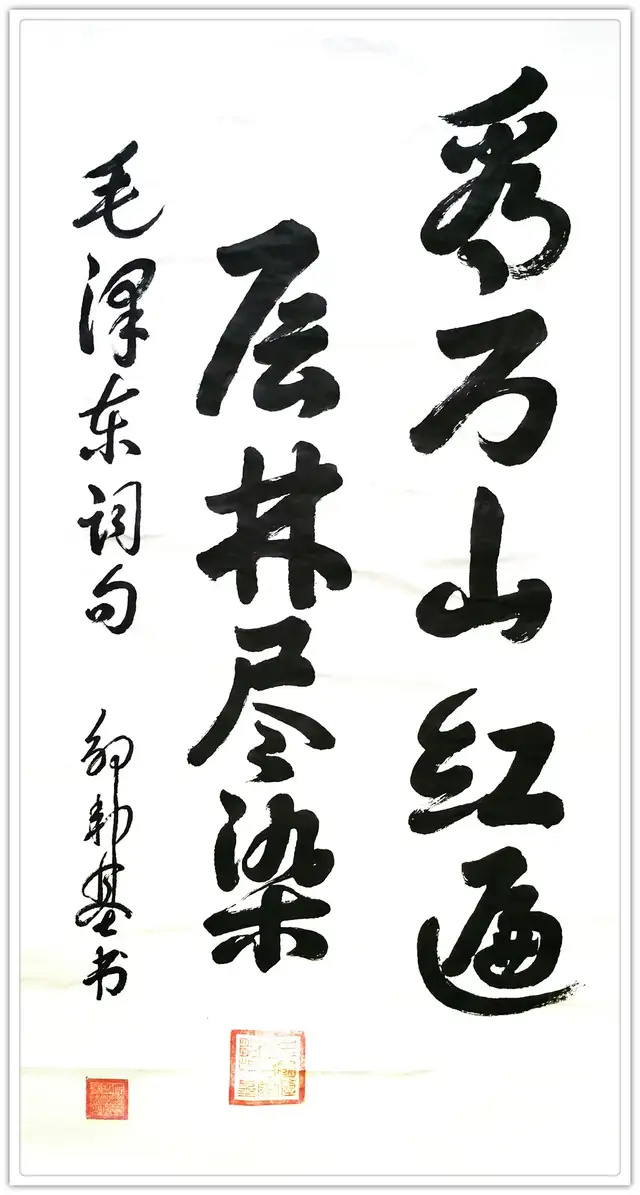 看万山红遍
层林尽染
毛泽东词句
基书